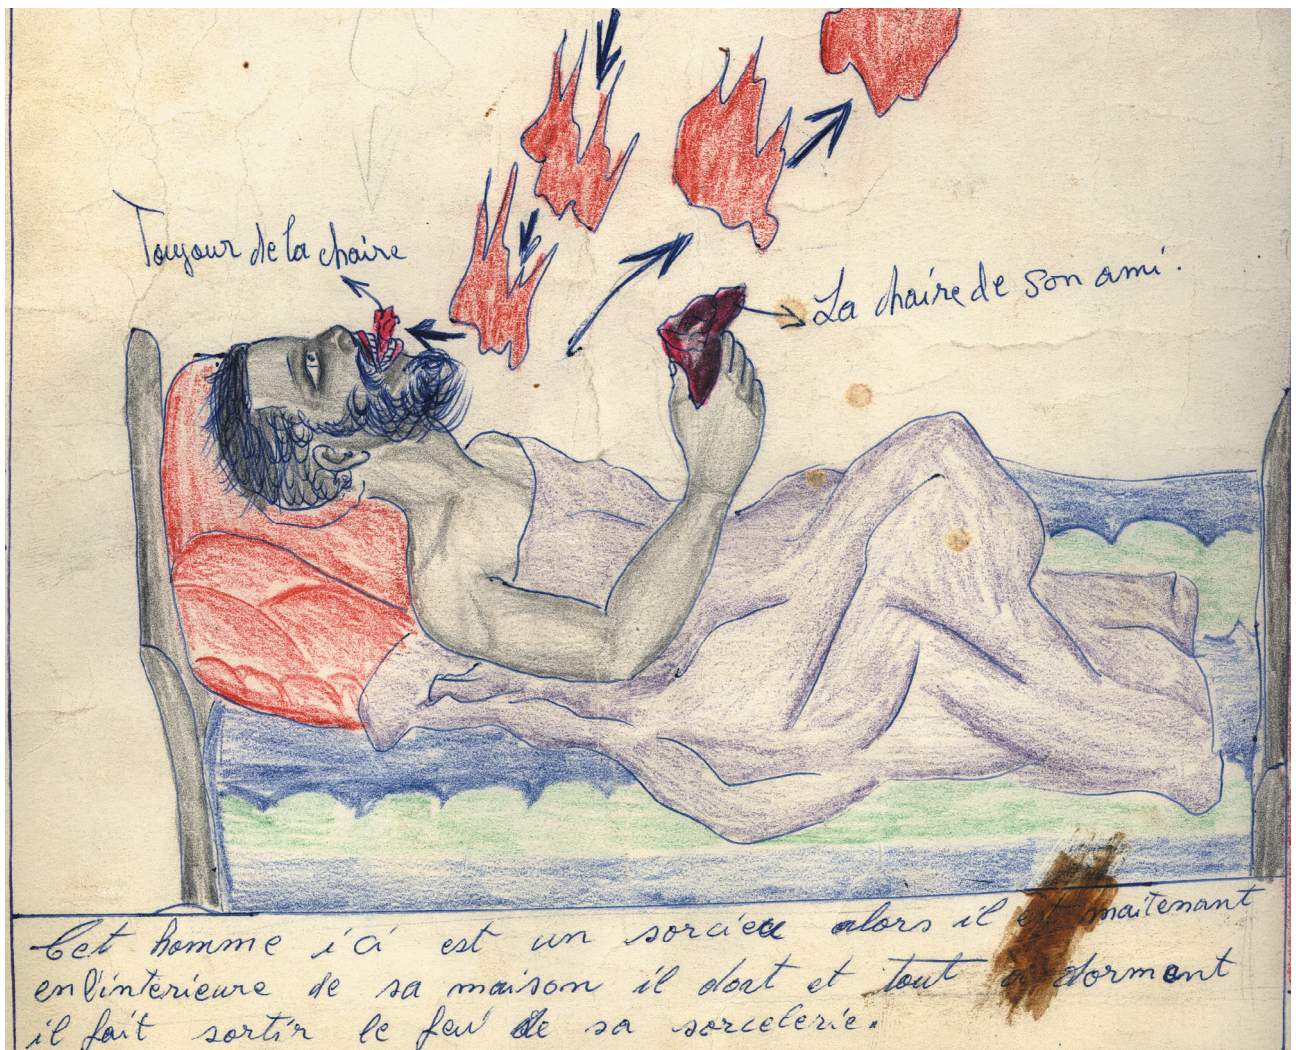 Toujour de la chaire
La chaire de son ami.
Cet homme ici est un sorcier alors il est maitenant
en l'interieure de sa maison il dort et tout à dormant
il fait sortir le feu de sa sorcelerie.